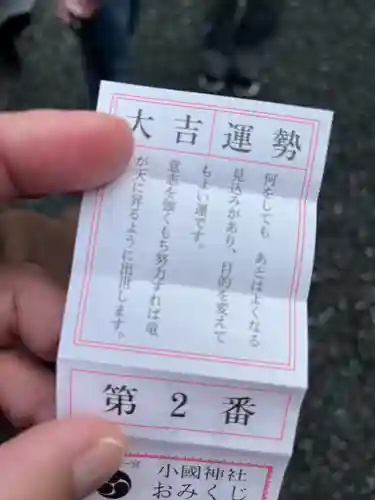 大吉運勢
何をしても あとはよくなる
見込みがあり、目的を変えて
もよい運です。
意志を強くもち努力すれば竜
が天に昇るように出世します。
第2番
一宮
小國神社
おみくじ